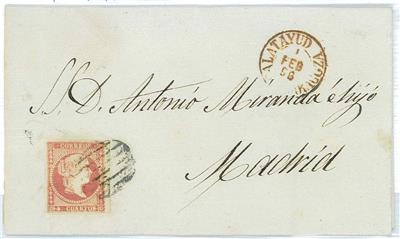 CALATAYUD
1
FEB
56
ZARAGOZA
S.S. D. Antonio Miranda é hijo
Madrid
CORREOS
CUARTOS